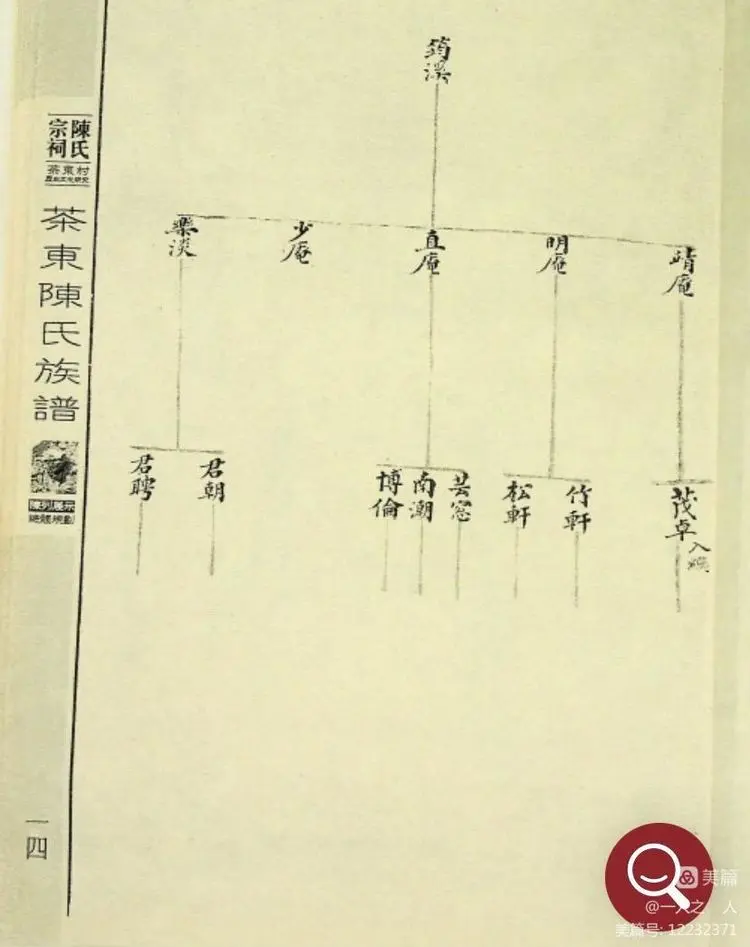 筠溪
靖庵
明庵
直庵
少庵
樂淡
茂卓
入嗣
竹軒
松軒
芸窓
南潮
博倫
君朝
君聘
陳氏
宗祠
茶東村
茶東陳氏族譜
陳列展示
一四
美篇
@一人之 人
美篇号: 12232371